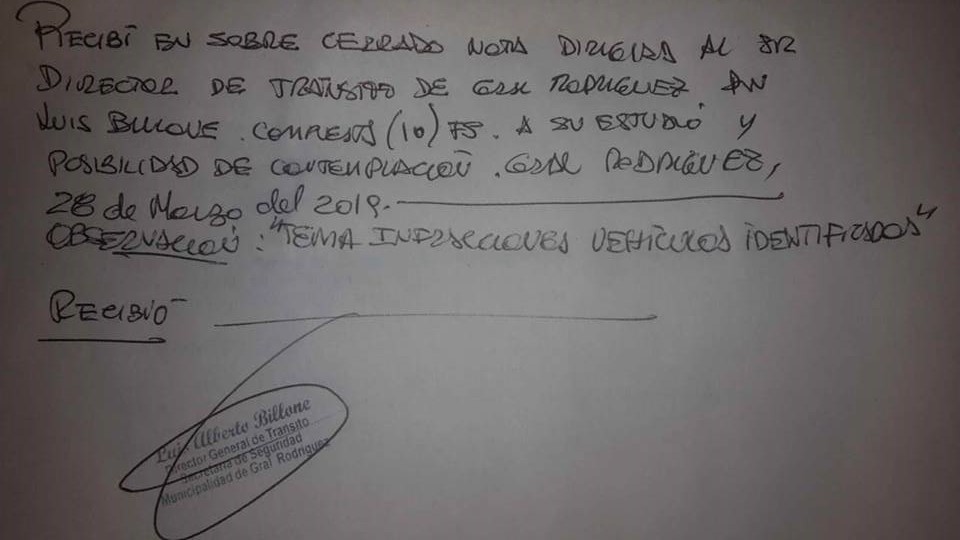 RECIBÍ EN SOBRE CERRADO NOTA DIRIGIDA AL SR
DIRECTOR DE TRÁNSITO DE GRAL RODRIGUEZ DN
LUIS BILLONE. COMPUESTA (10) FS. A SU ESTUDIO Y
POSIBILIDAD DE CONTEMPLACIÓN. GRAL RODRIGUEZ,
28 de Marzo del 2019.
OBSERVACION: "TEMA INFRACCIONES VEHÍCULOS IDENTIFICADOS"
RECIBIÓ
Luis Alberto Billone
Director General de Transito
Secretaria de Seguridad
Municipalidad de Gral Rodriguez